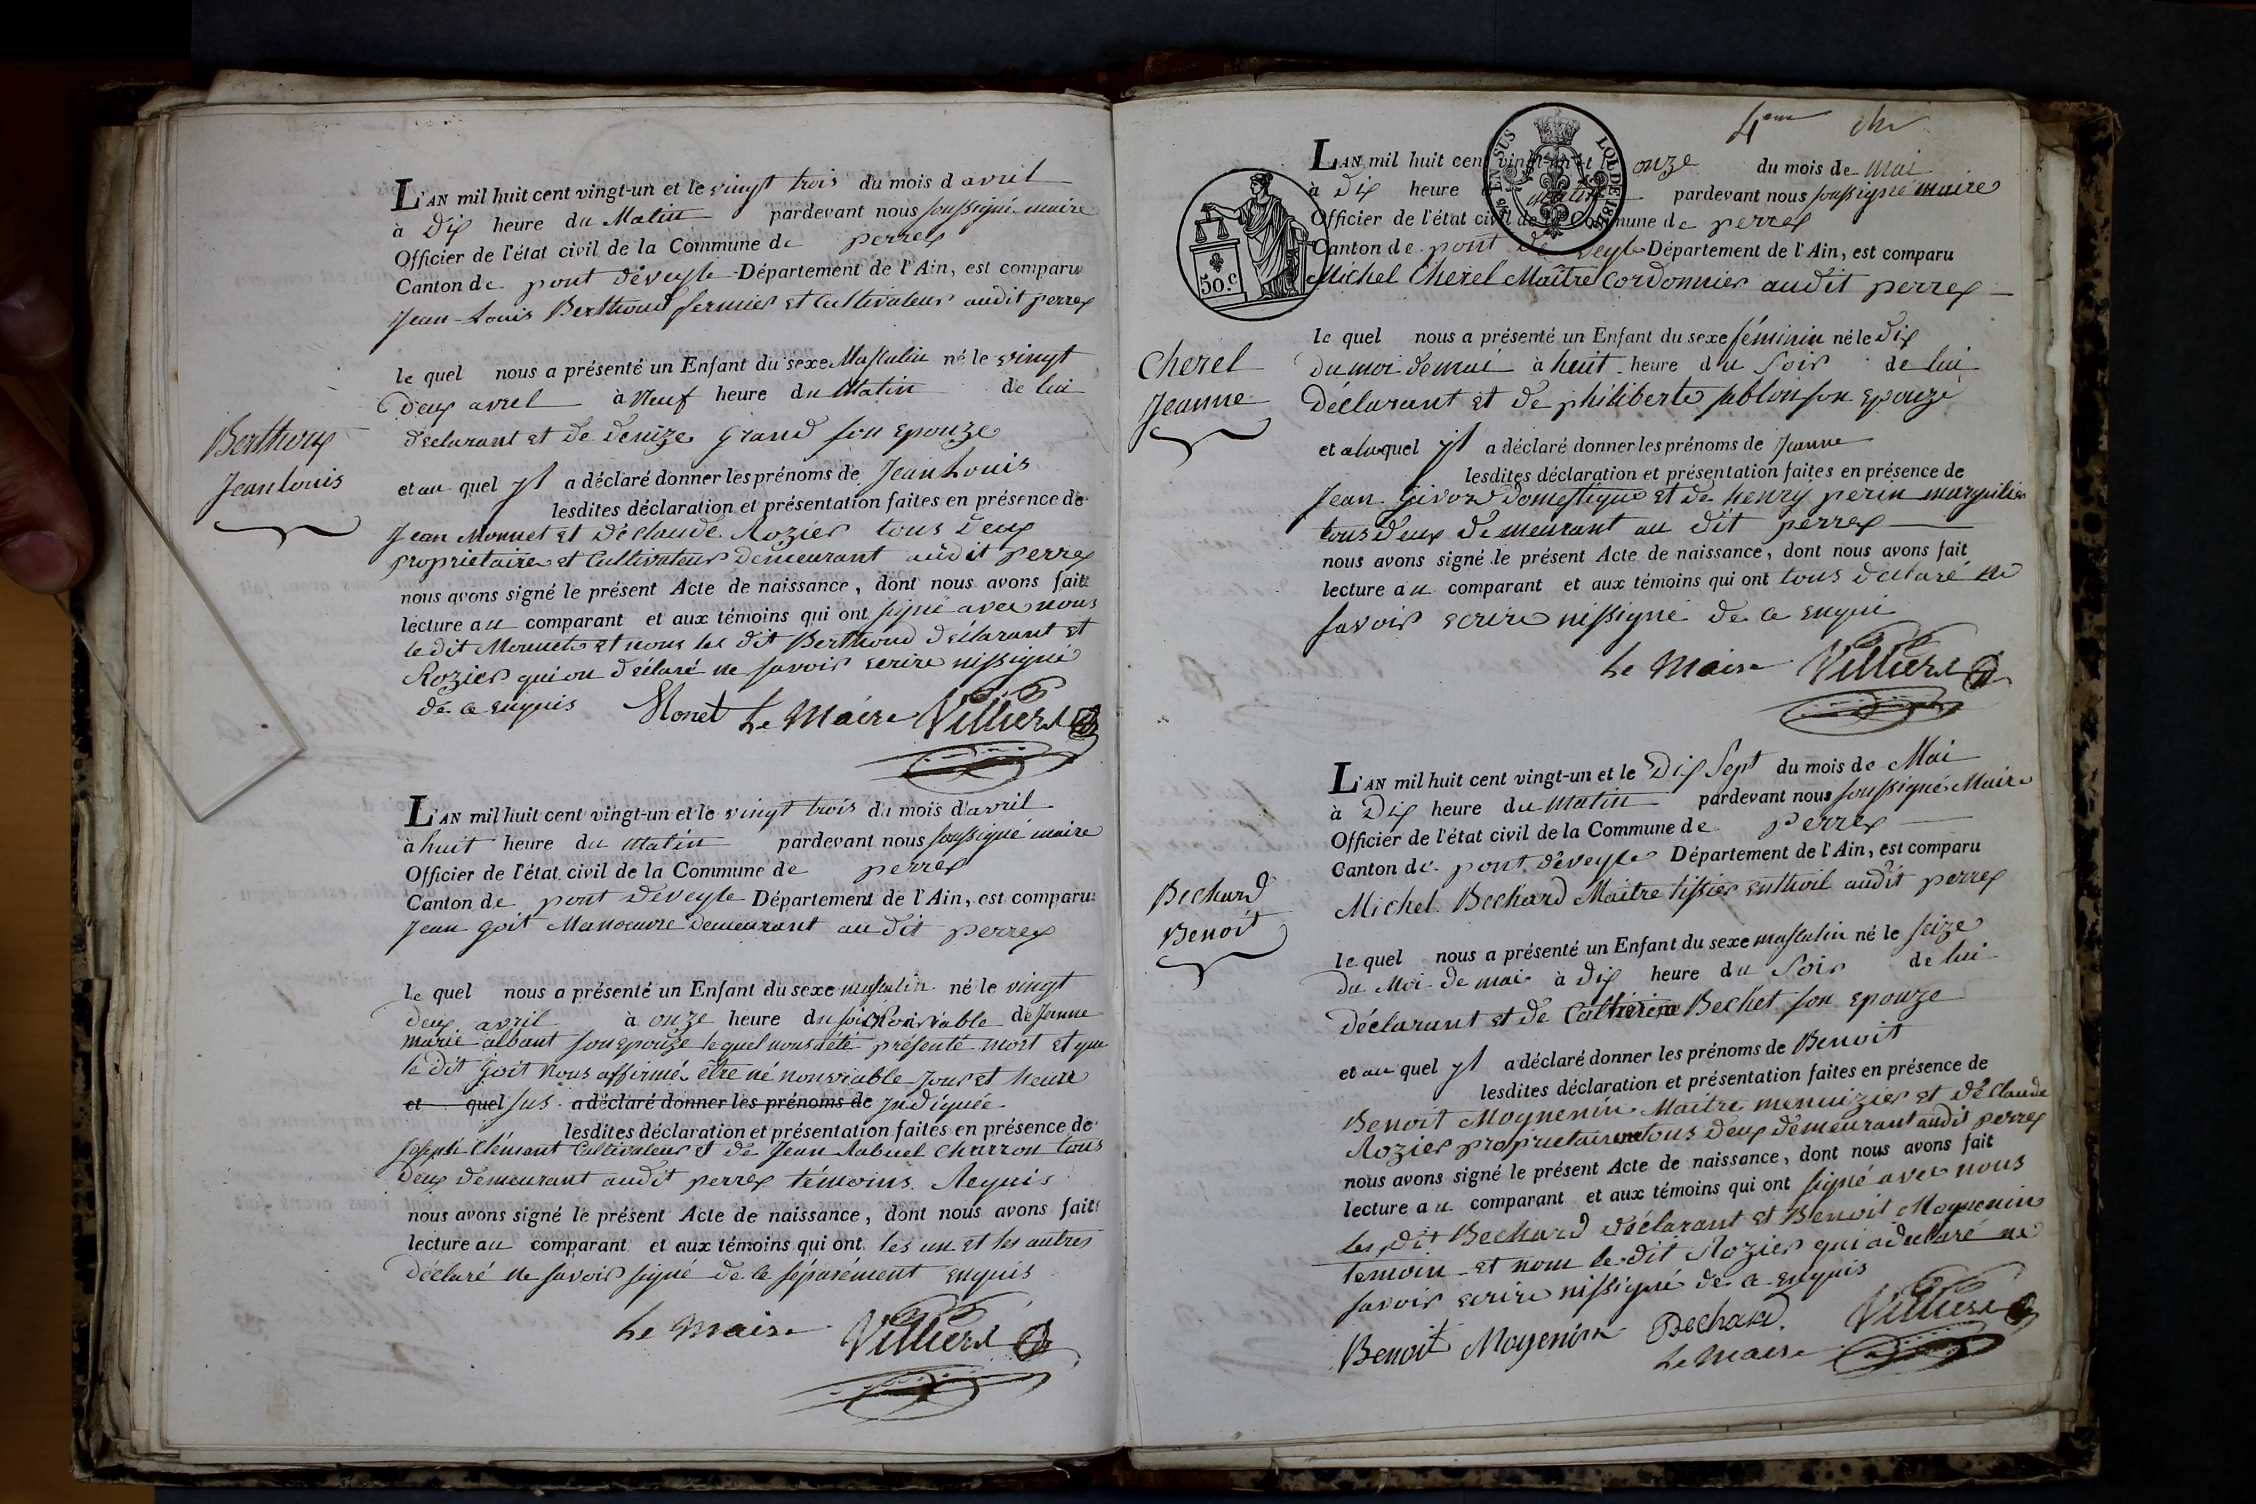 L'AN mil huit cent vingt-un et le vingt trois du mois d avril
à Dix heure du Matin pardevant nous soussigné maire
Officier de l'état civil de la Commune de perrex
Canton de pont déveyle Département de l'Ain, est comparu
Jean Louis Berthoud fermier et Cultivateur audit perrex
le quel nous a présenté un Enfant du sexe Masculin né le vingt
deux avril à Neuf heure du Matin de lui
déclarant et de denize Grand son epouze
Berthoux
Jean Louis
et au quel yl a déclaré donner les prénoms de Jean Louis
lesdites déclaration et présentation faites en présence de
Jean Monnet et de claude Rozier tous deux
proprietaire et Cultivateur demeurant audit perrex
nous avons signé le présent Acte de naissance, dont nous avons fait
lecture au comparant et aux témoins qui ont signé avec nous
le dit Monnet et nous les dit Berthoud déclarant et
Rozier qui on déclaré ne savoir ecrire nissigné
de ce enquis Monet Le Maire Villiers
L'AN mil huit cent vingt-un et le vingt trois du mois d'avril
à huit heure du matin pardevant nous soussigné maire
Officier de l'état civil de la Commune de perrex
Canton de pont deveyle Département de l'Ain, est comparu
Jean goit Manoeuvre demeurant au dit perrex
le quel nous a présenté un Enfant du sexe masculin né le vingt
deux avril à onze heure du soir non viable de Jeanne
marie albant son epouze le quel nous a été présenté mort et que
le dit Goit nous affirmé être né nonviable jour et heure
et quel sus a déclaré donner les prénoms de yndiquée
lesdites déclaration et présentation faites en présence de
Joseph Clémant Cultivateur et de Jean Rabuel charron tous
deux demeurant audit perrex témoins Requis
nous avons signé le présent Acte de naissance, dont nous avons fait
lecture au comparant et aux témoins qui ont les un et les autres
déclaré ne savoir signé de ce séparément enquis
Le Maire Villiers
4eme
EN SUS LOI DE
50 c
L'AN mil huit cent vingt-un et le onze du mois de mai
à Dix heure du matin pardevant nous soussigné maire
Officier de l'état civil de la Commune de perrex
Canton de pont de veyle Département de l'Ain, est comparu
Michel Cherel Maître Cordonnier audit perrex
le quel nous a présenté un Enfant du sexe féminin né le dix
du moi de mai à huit heure du soir de lui
déclarant et de philiberte sablon son epouze
Cherel
Jeanne
et a laquel yl a déclaré donner les prénoms de Jeanne
lesdites déclaration et présentation faites en présence de
Jean Givord domestique et de henry perin marguilier
tous deux demeurant au dit perrex
nous avons signé le présent Acte de naissance, dont nous avons fait
lecture au comparant et aux témoins qui ont tous déclaré ne
savoir ecrire nissigné de ce enqui
Le Maire Villiers
L'AN mil huit cent vingt-un et le Dix Sept du mois de Mai
à Dix heure du matin pardevant nous soussigné Maire
Officier de l'état civil de la Commune de perrex
Canton de pont déveyle Département de l'Ain, est comparu
Michel Bechard Maître tissier enthoil audit perrex
Bechard
Benoit
le quel nous a présenté un Enfant du sexe masculin né le seize
du Moi de mai à dix heure du soir de lui
déclarant et de Catherine Bechet son epouze
et au quel yl a déclaré donner les prénoms de Benoit
lesdites déclaration et présentation faites en présence de
Benoit Mognenin Maitre menuizier et de Claude
Rozier proprietaire tous deux demeurant audit perrex
nous avons signé le présent Acte de naissance, dont nous avons fait
lecture au comparant et aux témoins qui ont signé avec nous
les dit Bechard déclarant et Benoit Mognenin
temoin et nom le dit Rozier qui a declaré ne
savoir ecrire nissigné de ce enquis
Benoit Mogenin Bechard Villiers
Le Maire